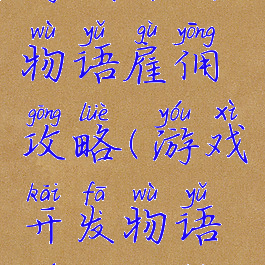 wù yǔ gù yōng
物语雇佣
gōng lüè yóu xì
攻略(游戏
kāi fā wù yǔ
开发物语